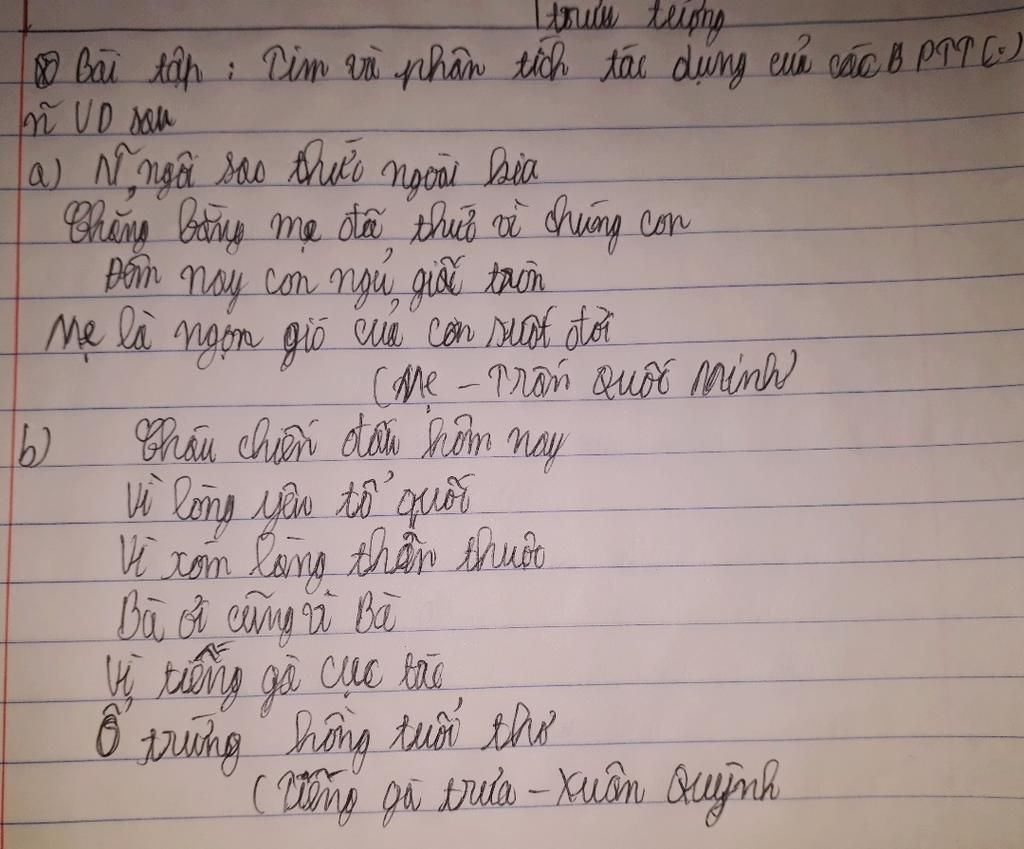 trừu tượng
⊗ Bài tập : Tìm và phân tích tác dụng của các B PTT (:)
ñ VD sau
a) Ñ, ngôi sao thức ngoài kia
Chẳng bằng mẹ đã thức vì chúng con
Đêm nay con ngủ giấc tròn
Mẹ là ngọn gió của con suốt đời
(Mẹ - Trần Quốc Minh)
b) Cháu chiến đấu hôm nay
Vì lòng yêu tổ quốc
Vì xóm làng thân thuộc
Bà ơi cũng vì Bà
Vì tiếng gà cục tác
Ổ trứng hồng tuổi thơ
(Tiếng gà trưa - Xuân Quỳnh